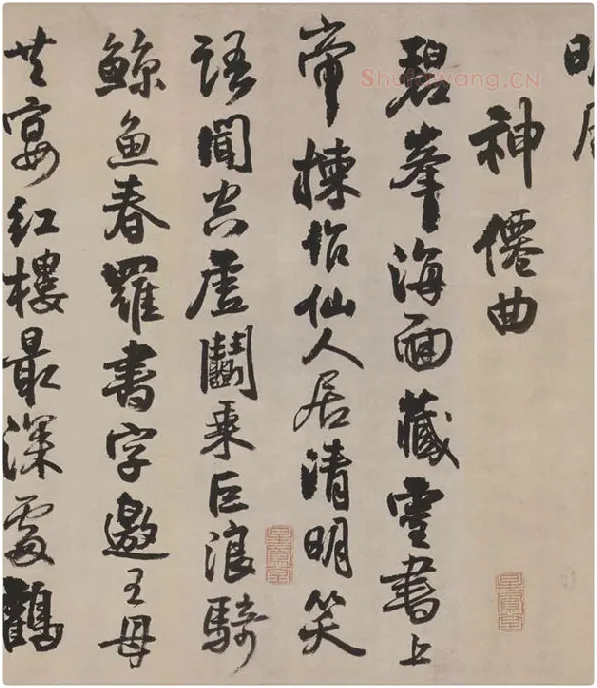 神僊曲
碧峯海面藏靈書上
帝揀作仙人居清明笑
語聞空虛鬭乘巨浪騎
鯨魚春羅書字邀王母
共宴紅樓最深處鶴
Shufawang.CN